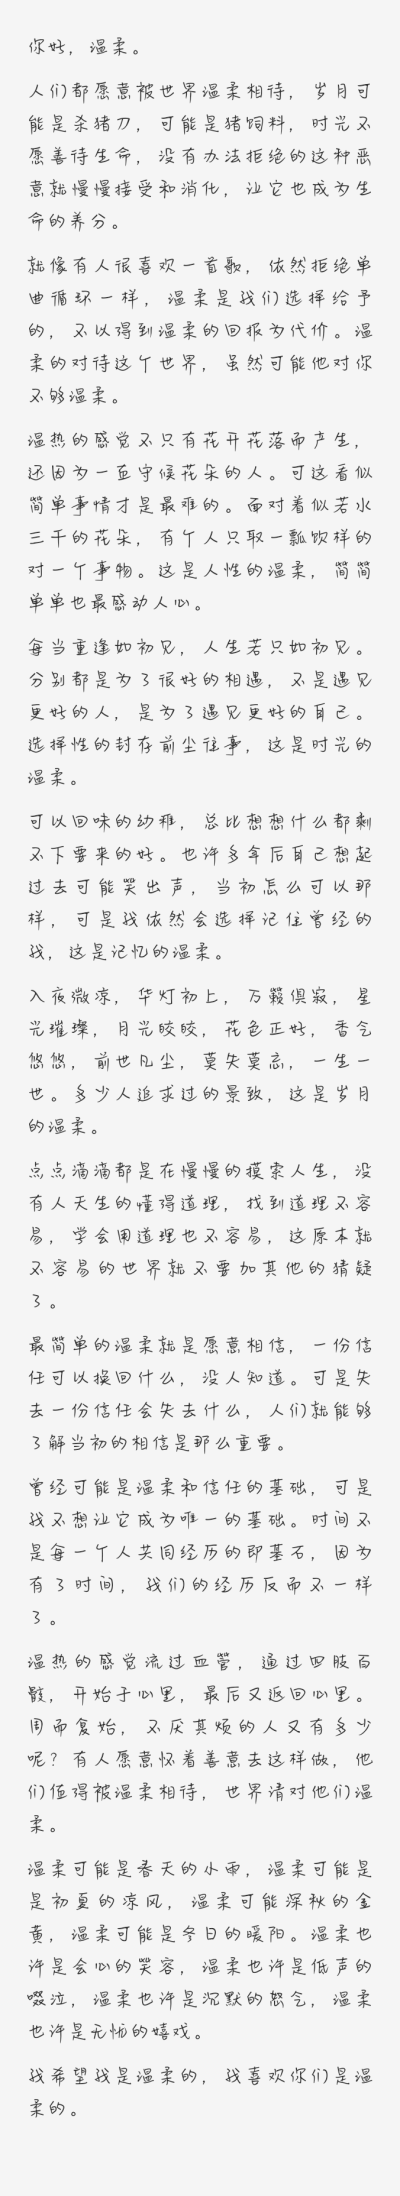 你好，温柔。
人们都愿意被世界温柔相待，岁月可
能是杀猪刀，可能是猪饲料，时光不
愿善待生命，没有办法拒绝的这种恶
意就慢慢接受和消化，让它也成为生
命的养分。
就像有人很喜欢一首歌，依然拒绝单
曲循环一样，温柔是我们选择给予
的，不以得到温柔的回报为代价。温
柔的对待这个世界，虽然可能他对你
不够温柔。
温热的感觉不只有花开花落而产生，
还因为一直守候花朵的人。可这看似
简单事情才是最难的。面对着似若水
三千的花朵，有个人只取一瓢饮样的
对一个事物。这是人性的温柔，简简
单单也最感动人心。
每当重逢如初见，人生若只如初见。
分别都是为了很好的相遇，不是遇见
更好的人，是为了遇见更好的自己。
选择性的封存前尘往事，这是时光的
温柔。
可以回味的幼稚，总比想想什么都剩
不下要来的好。也许多年后自己想起
过去可能笑出声，当初怎么可以那
样，可是我依然会选择记住曾经的
我，这是记忆的温柔。
入夜微凉，华灯初上，万籁俱寂，星
光璀璨，月光皎皎，花色正好，香气
悠悠，前世凡尘，莫失莫忘，一生一
世。多少人追求过的景致，这是岁月
的温柔。
点点滴滴都是在慢慢的摸索人生，没
有人天生的懂得道理，找到道理不容
易，学会用道理也不容易，这原本就
不容易的世界就不要加其他的猜疑
了。
最简单的温柔就是愿意相信，一份信
任可以换回什么，没人知道。可是失
去一份信任会失去什么，人们就能够
了解当初的相信是那么重要。
曾经可能是温柔和信任的基础，可是
我不想让它成为唯一的基础。时间不
是每一个人共同经历的即基石，因为
有了时间，我们的经历反而不一样
了。
温热的感觉流过血管，通过四肢百
骸，开始于心里，最后又返回心里。
周而复始，不厌其烦的人又有多少
呢？有人愿意怀着善意去这样做，他
们值得被温柔相待，世界请对他们温
柔。
温柔可能是春天的小雨，温柔可能是
是初夏的凉风，温柔可能深秋的金
黄，温柔可能是冬日的暖阳。温柔也
许是会心的笑容，温柔也许是低声的
啜泣，温柔也许是沉默的怒气，温柔
也许是无忧的嬉戏。
我希望我是温柔的，我喜欢你们是温
柔的。